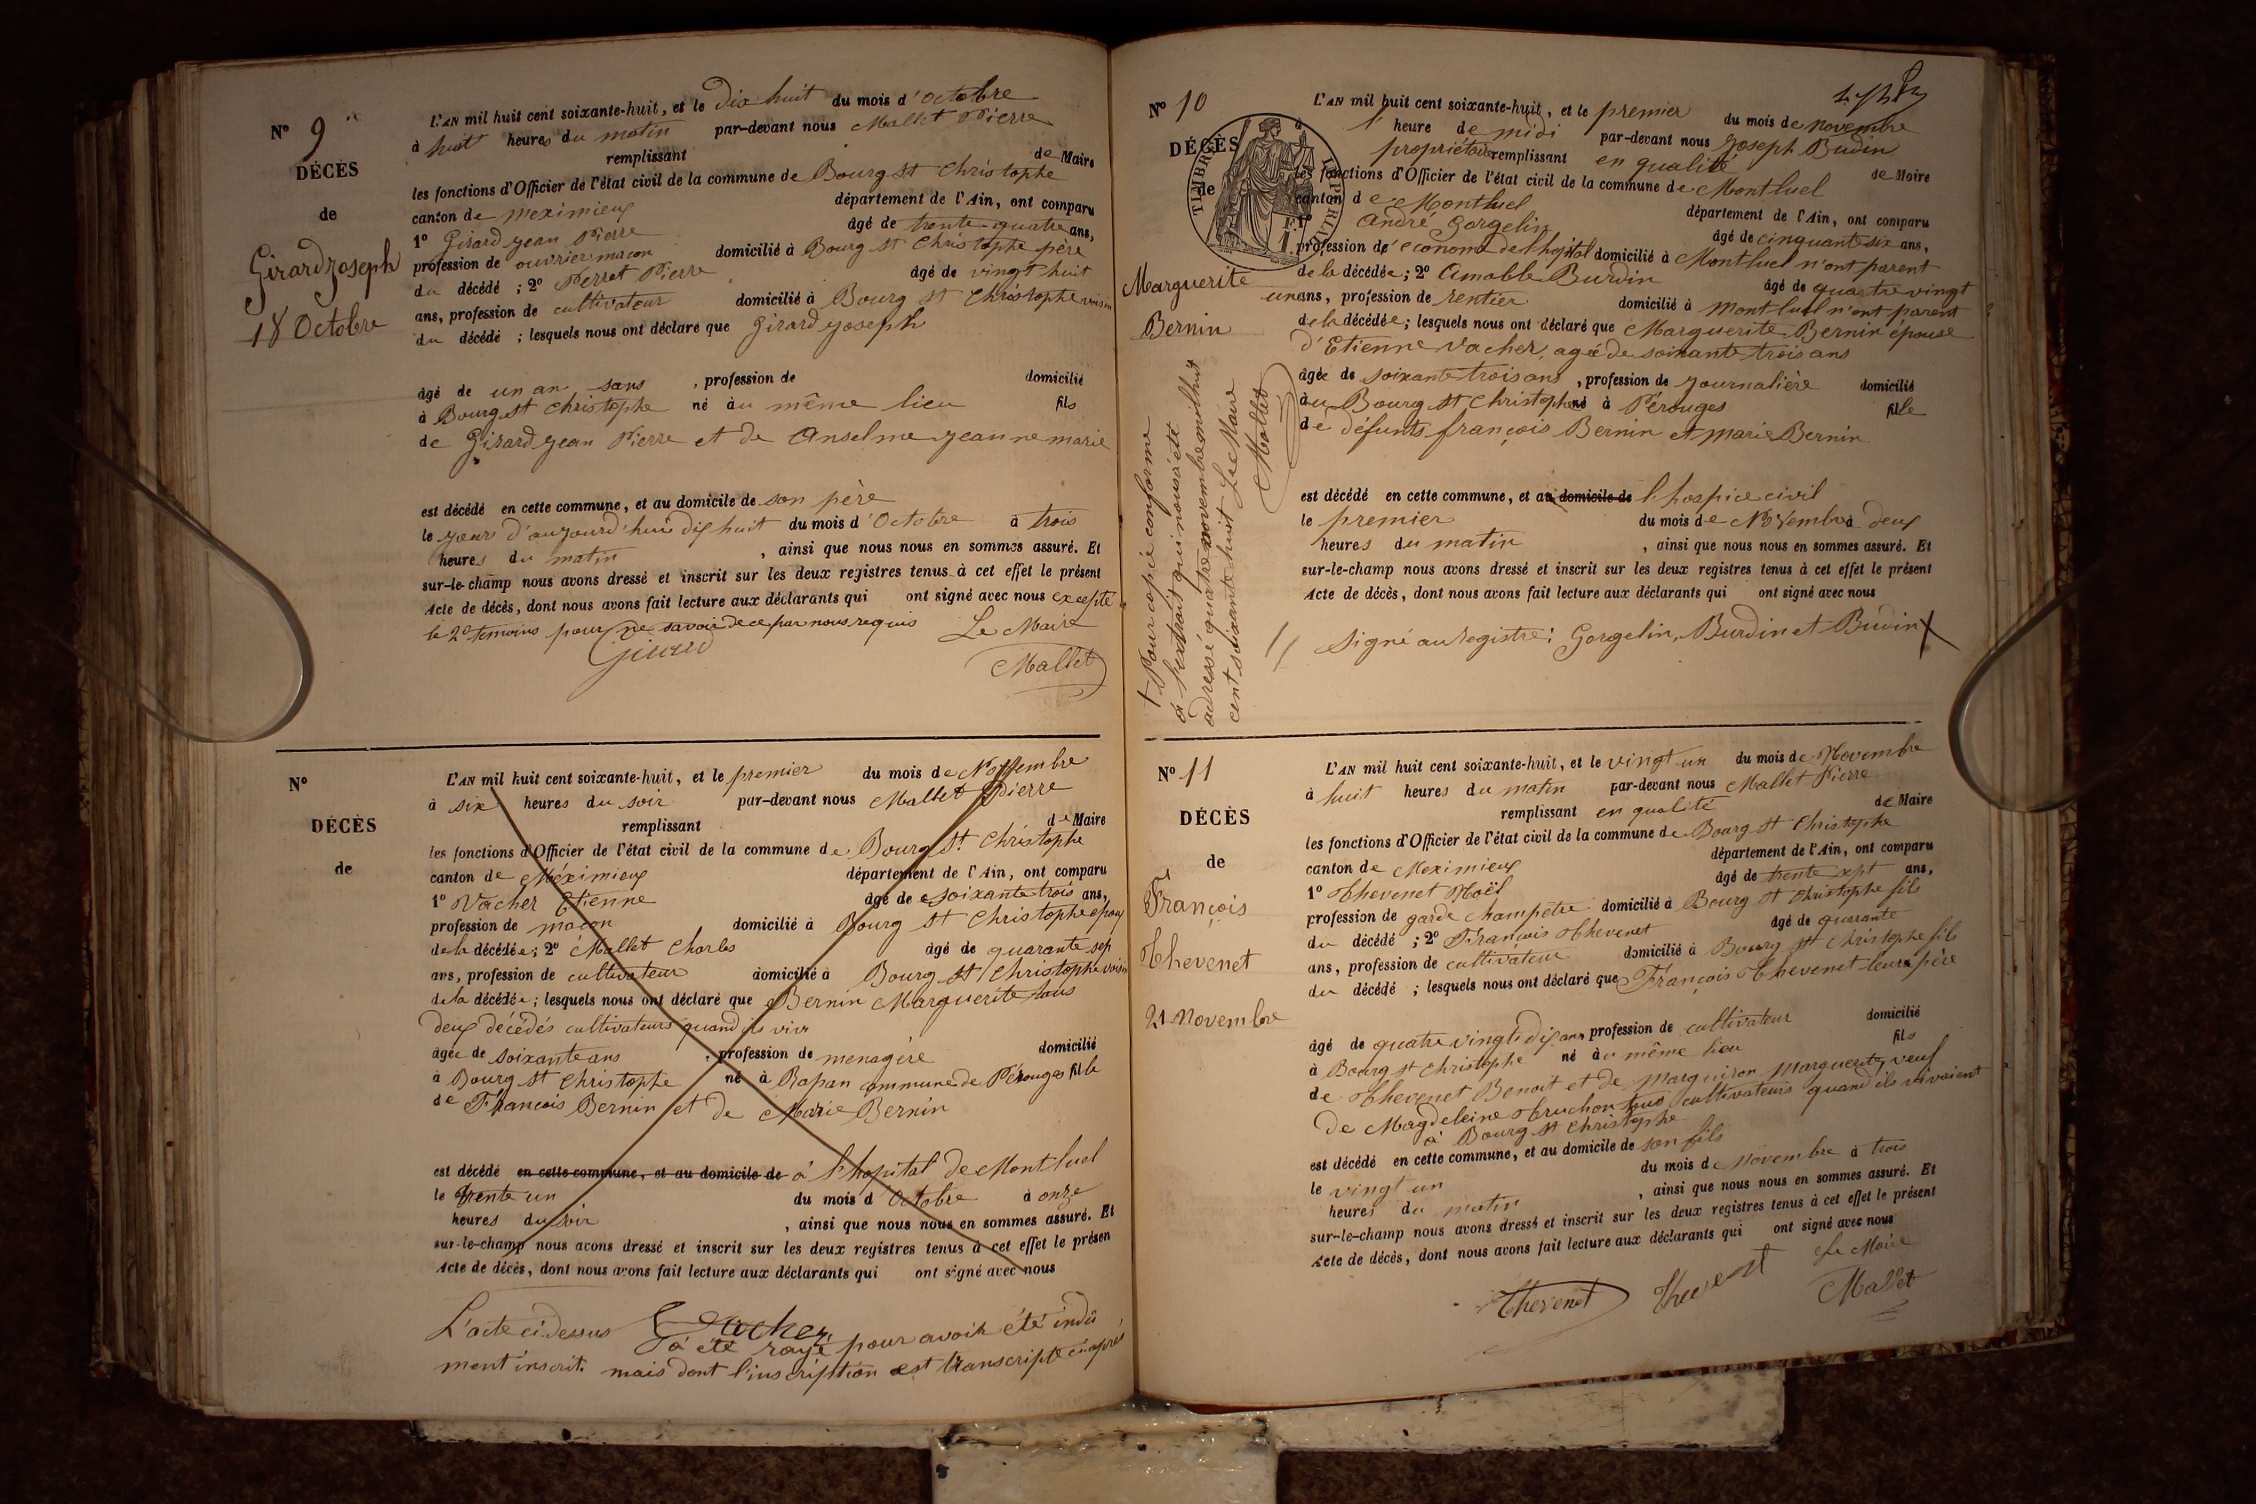 N° 9
DÉCÈS
de
Girard Joseph
18 Octobre
L'AN mil huit cent soixante-huit, et le dix huit du mois d'Octobre
à huit heures du matin par-devant nous Mallet Pierre
remplissant de Maire
les fonctions d'Officier de l'état civil de la commune de Bourg St Christophe
canton de Meximieux département de l'Ain, ont comparu
1° Girard Jean Pierre âgé de trente quatre ans,
profession de ouvrier maçon domicilié à Bourg St Christophe père
du décédé ; 2° Perret Pierre âgé de vingt huit
ans, profession de cultivateur domicilié à Bourg St Christophe voisin
du décédé ; lesquels nous ont déclaré que Girard Joseph
âgé de un an sans , profession de domicilié
à Bourg St Christophe né au même lieu fils
de Girard Jean Pierre et de Anselme Jeanne marie
est décédé en cette commune, et au domicile de son père
le jour d'aujourd'hui dix huit du mois d'Octobre à trois
heures du matin , ainsi que nous nous en sommes assuré. Et
sur-le-champ nous avons dressé et inscrit sur les deux registres tenus à cet effet le présent
Acte de décès, dont nous avons fait lecture aux déclarants qui ont signé avec nous excepté
le 2e temoins pour ne savoir de ce par nous requis Le Maire
Girard Mallet
N°
DÉCÈS
de
L'AN mil huit cent soixante-huit, et le premier du mois de Novembre
à six heures du soir par-devant nous Mallet Pierre
remplissant de Maire
les fonctions d'Officier de l'état civil de la commune de Bourg St Christophe
canton de Méximieux département de l'Ain, ont comparu
1° Vacher Etienne âgé de soixante trois ans,
profession de maçon domicilié à Bourg St Christophe epoux
de la décédée ; 2° Mallet Charles âgé de quarante sep
ans, profession de cultivateur domicilié à Bourg St Christophe voisin
de la décédée ; lesquels nous ont déclaré que Bernin Marguerite tous
deux décédés cultivateurs quand ils viv
âgée de soixante ans , profession de menagère domicilié
à Bourg St Christophe né à Rapan commune de Pérouges fille
de François Bernin et de Marie Bernin
est décédé en cette commune, et au domicile de à l'hopital de Montluel
le trente un du mois d Octobre à onze
heures du soir , ainsi que nous nous en sommes assuré. Et
sur-le-champ nous avons dressé et inscrit sur les deux registres tenus à cet effet le présen
Acte de décès, dont nous avons fait lecture aux déclarants qui ont signé avec nous
Vacher
L'acte ci dessus a été rayé pour avoir été indû
ment inscrit. mais dont l'inscription est transcripte ci après
N° 10
DÉCÈS
de
TIMBRE IMPERIAL
Marguerite
Bernin
L'AN mil huit cent soixante-huit, et le premier du mois de novembre
à 1 heure de midi par-devant nous Joseph Budin
propriétaire remplissant en qualité de Maire
les fonctions d'Officier de l'état civil de la commune de Montluel
canton de Montluel département de l'Ain, ont comparu
1° André Gorgelin âgé de cinquante six ans,
profession d'économe de l'hopital domicilié à Montluel n'ont parent
de la décédée ; 2° Amable Burdin âgé de quatre vingt
un ans, profession de rentier domicilié à Montluel n'ont parent
de la décédée ; lesquels nous ont déclaré que Marguerite Bernin épouse
d'Etienne Vacher, agée de soixante trois ans
âgée de soixante trois ans , profession de Journalière domicilié
à au Bourg St Christophe né à Pérouges fille
de défunts françois Bernin et marie Bernin
est décédé en cette commune, et au domicile de l'hospice civil
le premier du mois de Novembre à deux
heures du matin , ainsi que nous nous en sommes assuré. Et
sur-le-champ nous avons dressé et inscrit sur les deux registres tenus à cet effet le présent
Acte de décès, dont nous avons fait lecture aux déclarants qui ont signé avec nous
Signé au registre : Gorgelin, Burdin et Budin
Pour copie conforme
à l'extrait qui nous a été
adressé quatre novembre mil huit
cent soixante huit Le Maire
Mallet
N° 11
DÉCÈS
de
François
Thevenet
21 Novembre
L'AN mil huit cent soixante-huit, et le vingt un du mois de Novembre
à huit heures du matin par-devant nous Mallet Pierre
remplissant en qualité de Maire
les fonctions d'Officier de l'état civil de la commune de Bourg St Christophe
canton de Meximieux département de l'Ain, ont comparu
1° Thevenet Noël âgé de trente sept ans,
profession de garde champetre domicilié à Bourg St Christophe fils
du décédé ; 2° François Thevenet âgé de quarante
ans, profession de cultivateur domicilié à Bourg St Christophe fils
du décédé ; lesquels nous ont déclaré que François Thevenet leur père
âgé de quatre vingt dix ans profession de cultivateur domicilié
à Bourg St Christophe né au même lieu fils
de Thevenet Benoit et de Marguiron Marguerite, veuf
de Magdeleine Truchon tous cultivateurs quand ils vivaient
à Bourg St Christophe
est décédé en cette commune, et au domicile de son fils
le vingt un du mois de novembre à trois
heures du matin , ainsi que nous nous en sommes assuré. Et
sur-le-champ nous avons dressé et inscrit sur les deux registres tenus à cet effet le présent
Acte de décès, dont nous avons fait lecture aux déclarants qui ont signé avec nous
Le Maire
Thevenet Thevenet Mallet